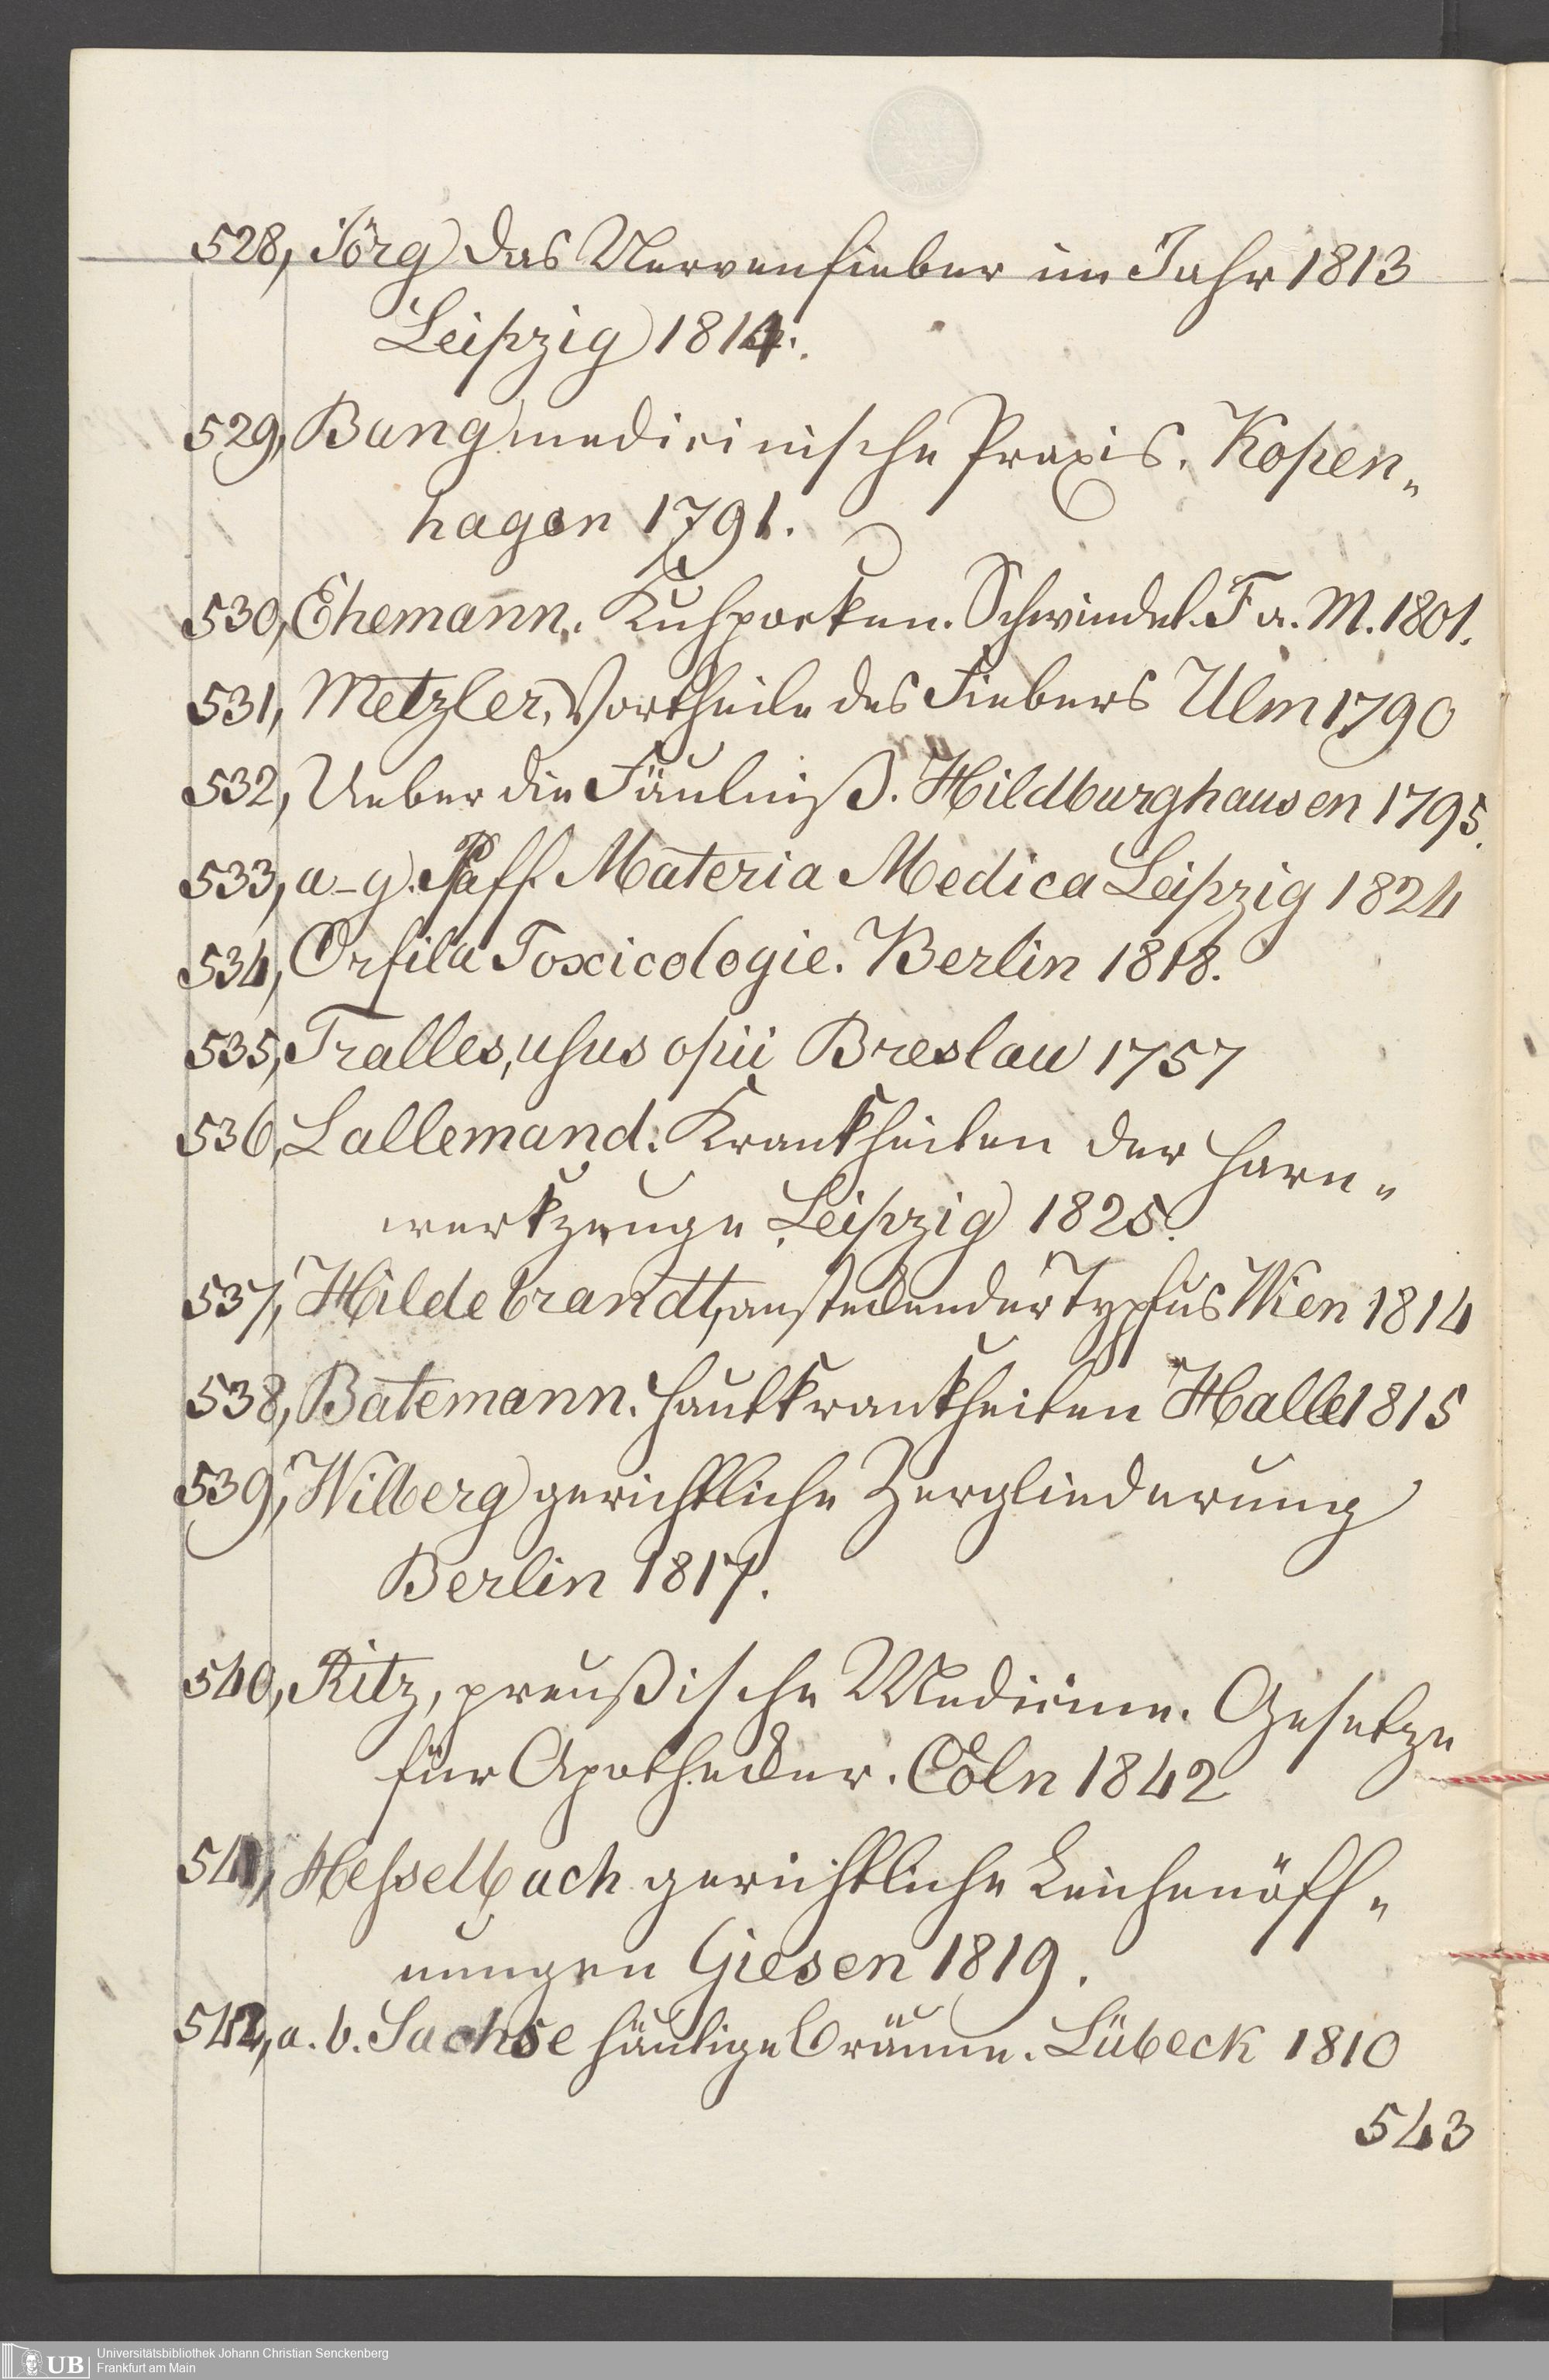 528, Jörg das Nervenfieber im Jahr 1813
Leipzig 1814.
529, Bang medicinische Praxis. Kopen„
hagen 1791.
530, Ehemann. Kuhpocken. Schwindel. F a. M. 1801.
531, Metzler, Vortheile des Fiebers Ulm 1790
532, Ueber die Fäulniß. Hildburghausen 1795.
533, a-g. Paff. Materia Medica Leipzig 1824
534, Orfila Toxicologie. Berlin 1818.
535, Tralles, usus opii Breslau 1757
536, Lallemand. Krankheiten der Harn„
werkzeuge. Leipzig 1825.
537, Hildebrandt, ansteckender Typhus Wien 1814
538, Batemann. Hautkrankheiten Halle 1815
539, Wilberg gerichtliche Zergliederung
Berlin 1817.
540, Ritz, preußische Medicinn. Gesetze
für Apothecker. Cöln 1842
541, Hesselbach gerichtliche Leichenöff„
nungen Giesen 1819.
542, a. b. Sachse häutige Bräune. Lübeck 1810
543
UB Universitätsbibliothek Johann Christian Senckenberg
Frankfurt am Main